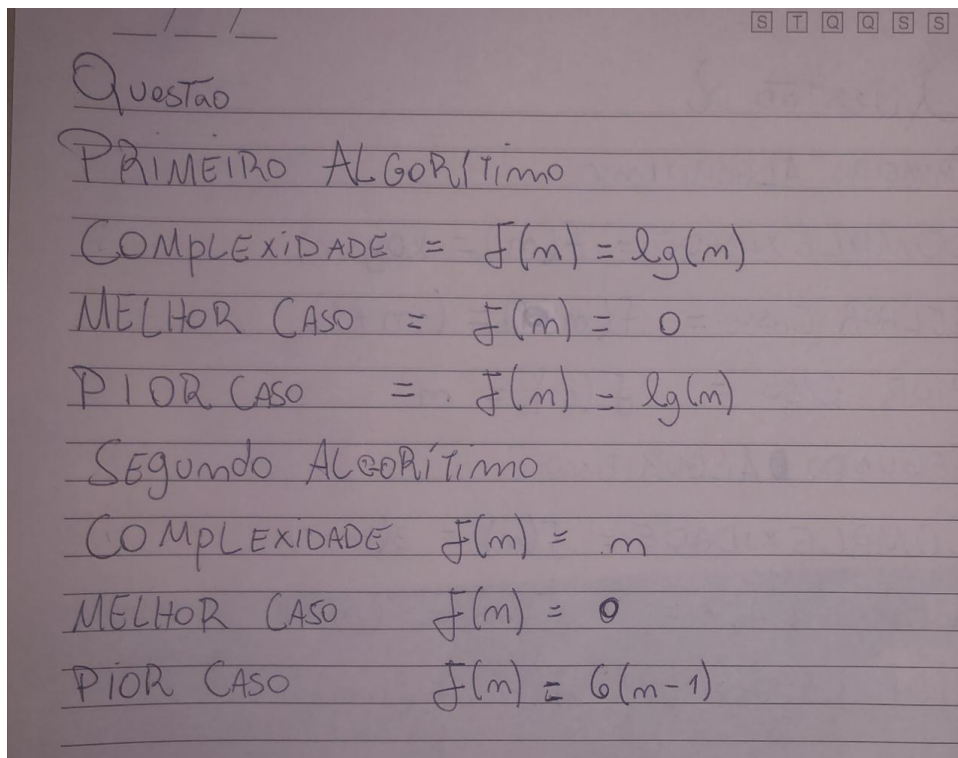 __/__/__ S T Q Q S S
Questão
PRIMEIRO ALGORÍTIMO
COMPLEXIDADE = f(n) = lg(n)
MELHOR CASO = f(n) = 0
PIOR CASO = f(n) = lg(n)
SEGUNDO ALGORÍTIMO
COMPLEXIDADE f(n) = n
MELHOR CASO f(n) = 0
PIOR CASO f(n) = 6(n-1)